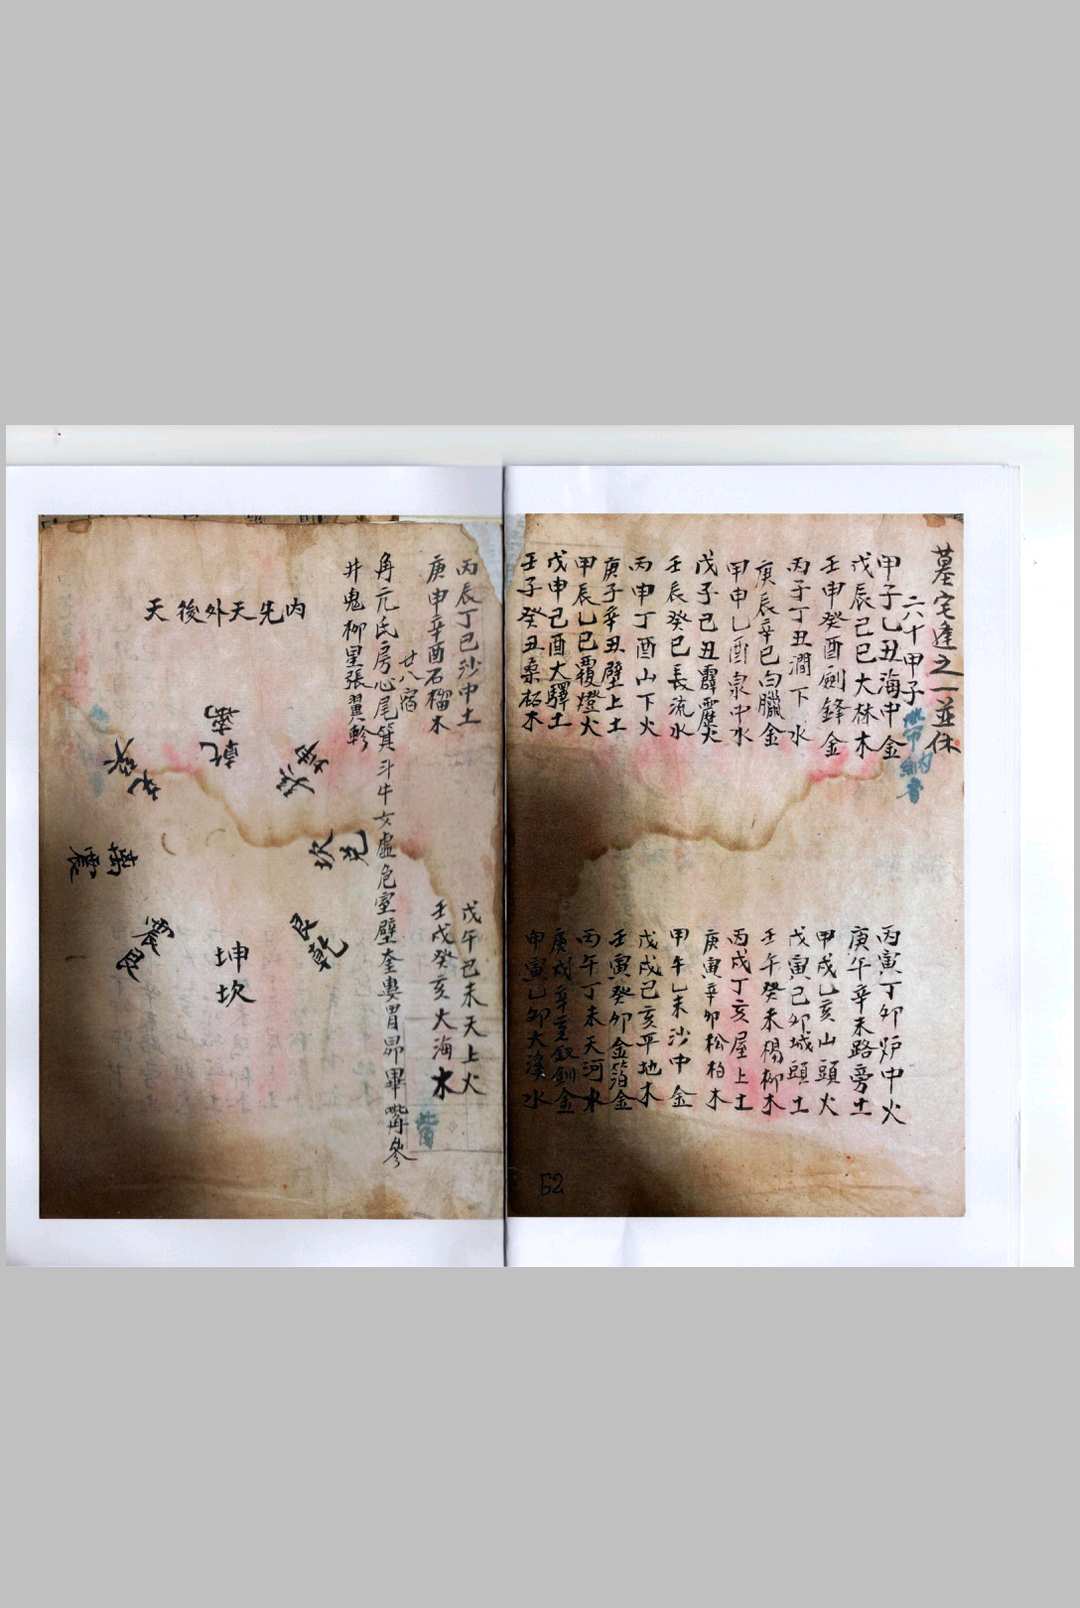 墓宅逢之一並休
六十甲子
甲子乙丑海中金 丙寅丁卯炉中火
戊辰己巳大林木 庚午辛未路旁土
壬申癸酉劍鋒金 甲戌乙亥山頭火
丙子丁丑澗下水 戊寅己卯城頭土
庚辰辛巳白臘金 壬午癸未楊柳木
甲申乙酉泉中水 丙戌丁亥屋上土
戊子己丑霹靂火 庚寅辛卯松柏木
壬辰癸巳長流水 甲午乙未沙中金
丙申丁酉山下火 戊戌己亥平地木
庚子辛丑壁上土 壬寅癸卯金箔金
甲辰乙巳覆燈火 丙午丁未天河水
戊申己酉大驛土 庚戌辛亥釵釧金
壬子癸丑桑柘木 甲寅乙卯大溪水
62
丙辰丁巳沙中土 戊午己未天上火
庚申辛酉石榴木 壬戌癸亥大海水
觜
廿八宿
角亢氐房心尾箕斗牛女虛危室壁奎婁胃昴畢觜參
井鬼柳星張翼軫
內先天外後天
乾離
坎兌
艮乾
坤坎
震艮
離震
兌巽
巽坤